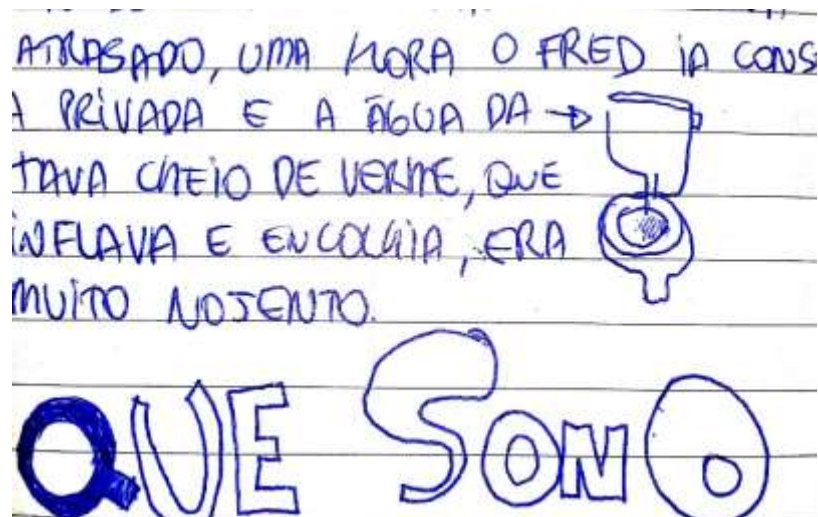 ATRASADO, UMA HORA O FRED IA CONS
A PRIVADA E A ÁGUA DA
TAVA CHEIO DE VERME, QUE
INFLAVA E ENCOLHIA, ERA
MUITO NOJENTO.
QUE SONO